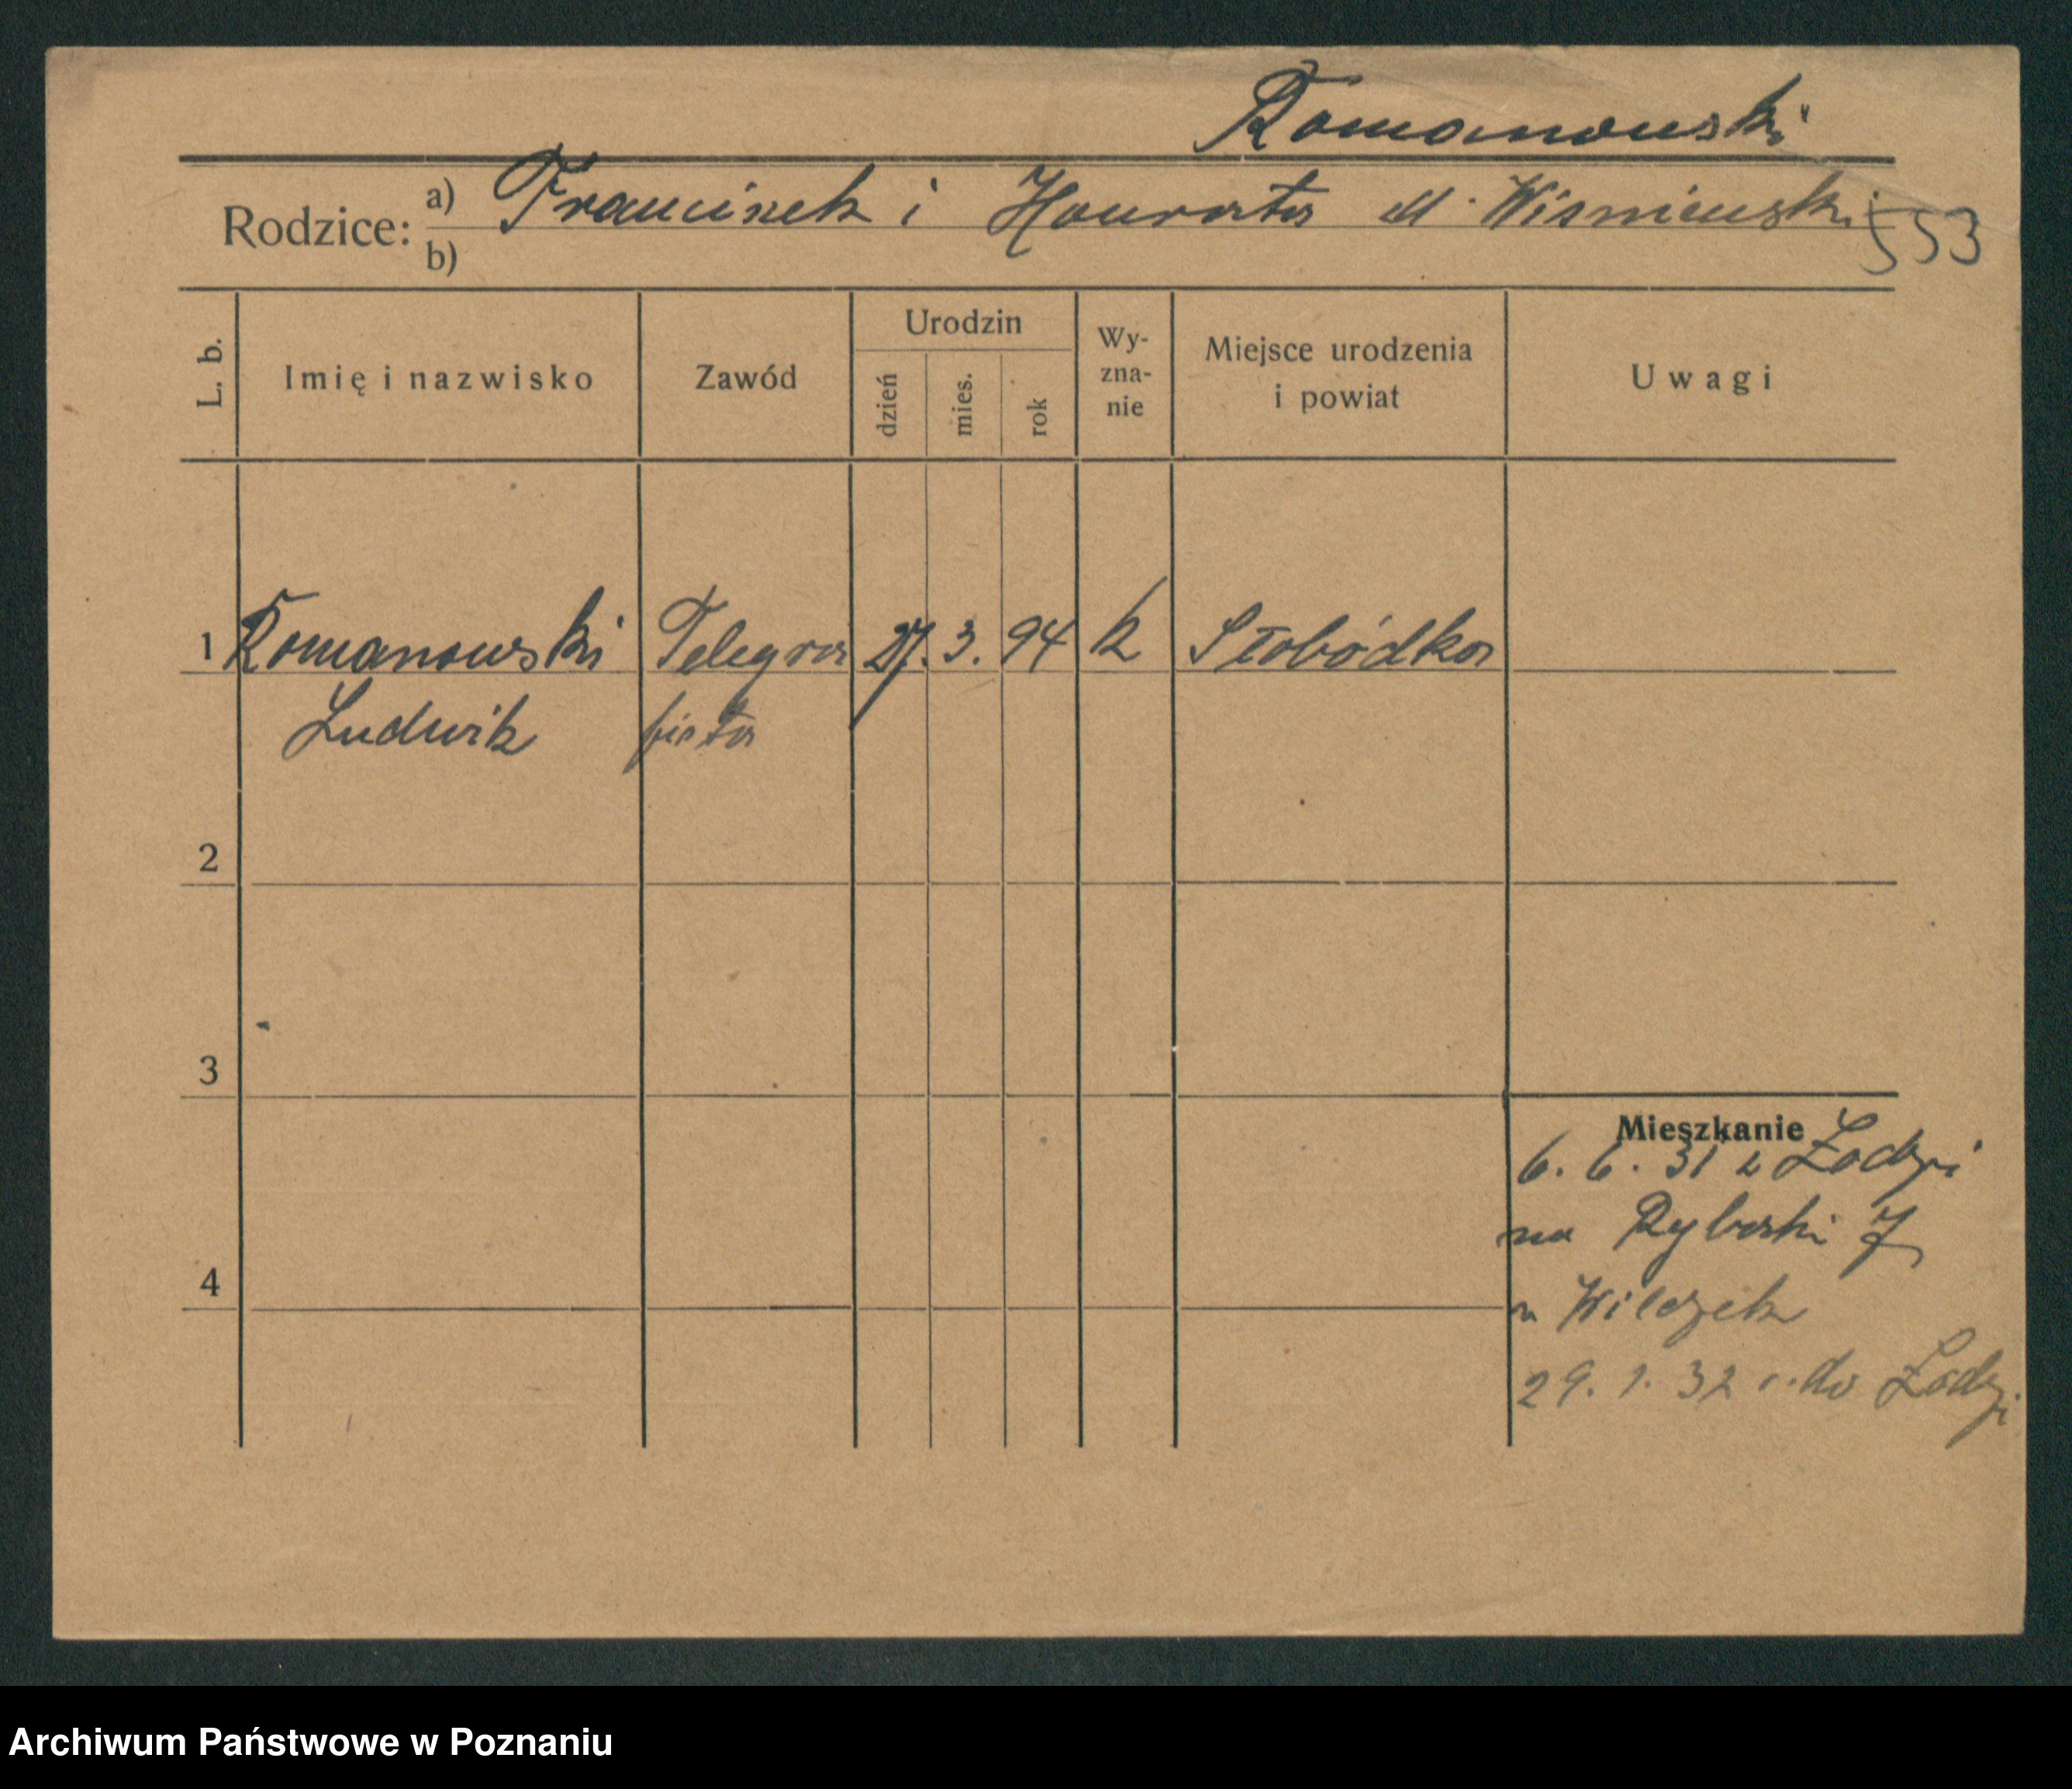 Romanowski
Rodzice: a) Franciszek i Honorata d. Wisniewski
b)
553
L. b.
Imię i nazwisko
Zawód
Urodzin
dzień
mies.
rok
Wy-
zna-
nie
Miejsce urodzenia
i powiat
Uwagi
1 Romanowski Telegra 27. 3. 94 k Słobódka
Ludwik fista
2
3
4
Mieszkanie
6. 6. 31 z Łodzi
na Rybaki 7
u Wilczek
29. 1. 32 r. do Łodzi
Archiwum Państwowe w Poznaniu